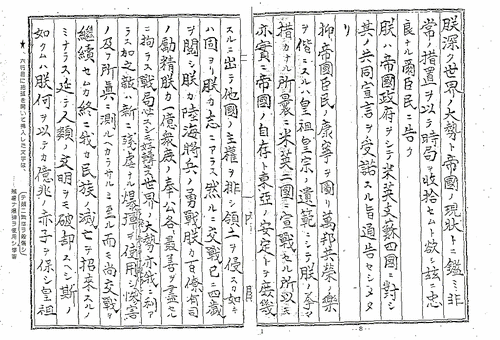 朕深ク世界ノ大勢ト帝國ノ現狀トニ鑑ミ非
常ノ措置ヲ以テ時局ヲ收拾セムト欲シ茲ニ忠
良ナル爾臣民ニ告ク
朕ハ帝國政府ヲシテ米英支蘇四國ニ對シ
其ノ共同宣言ヲ受諾スル旨通告セシメタ
リ
抑〻帝國臣民ノ康寧ヲ圖リ萬邦共榮ノ樂
ヲ偕ニスルハ皇祖皇宗ノ遺範ニシテ朕ノ拳々
措カサル所曩ニ米英二國ニ宣戰セル所以モ
亦實ニ帝國ノ自存ト東亞ノ安定トヲ庶幾
スルニ出テ他國ノ主權ヲ排シ領土ヲ侵スカ如キ
ハ固ヨリ朕カ志ニアラス然ルニ交戰已ニ四歲
ヲ閱シ朕カ陸海將兵ノ勇戰朕カ百僚有司
ノ勵精朕カ一億衆庶ノ奉公各〻最善ヲ盡セル
ニ拘ラス戰局必スシモ好轉セス世界ノ大勢亦我ニ利アラス
加之敵ハ新ニ殘虐ナル爆彈ヲ使用シ慘害
ノ及フ所眞ニ測ルヘカラサルニ至ル而モ尚交戰ヲ
繼續セムカ終ニ我カ民族ノ滅亡ヲ招來スルノ
ミナラス延テ人類ノ文明ヲモ破却スヘシ斯ノ
如クムハ朕何ヲ以テカ億兆ノ赤子ヲ保シ皇祖
8